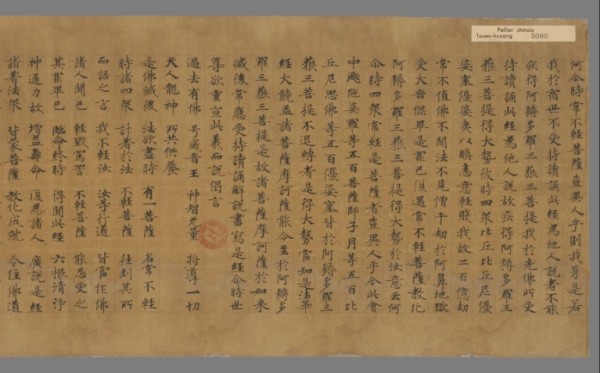 Pelliot chinois
Touen-houang 2080
何尒時常不輕菩薩豈異人乎則我身是若
我於宿世不受持讀誦此經爲他人說者不能
疾得阿耨多羅三藐三菩提我於先佛所受
持讀誦此經爲人說故疾得阿耨多羅三
藐三菩提得大勢彼時四衆比丘比丘尼優
婆塞優婆夷以瞋恚意輕賤我故二百億劫
常不值佛不聞法不見僧千劫於阿鼻地獄
受大苦惱畢是罪已復遇常不輕菩薩教化
阿耨多羅三藐三菩提得大勢於汝意云何
尒時四衆常輕是菩薩者豈異人乎今此會
中颰陁婆羅等五百菩薩師子月等五百比
丘尼思佛等五百優婆塞皆於阿耨多羅三
藐三菩提不退轉者是得大勢當知是法華
經大饒益諸菩薩摩訶薩能令至於阿耨多
羅三藐三菩提是故諸菩薩摩訶薩於如來
滅後常應受持讀誦解說書寫是經尒時世
尊欲重宣此義而說偈言
過去有佛 号威音王 神智无量 將導一切
天人龍神 所共供養
是佛滅後 法欲盡時 有一菩薩 名常不輕
時諸四衆 計著於法 不輕菩薩 往到其所
而語之言 我不輕汝 汝等行道 皆當作佛
諸人聞已 輕毀罵詈 不輕菩薩 能忍受之
其罪畢已 臨命終時 得聞此經 六根清淨
神通力故 增益壽命 復爲諸人 廣說是經
諸著法衆 皆蒙菩薩 教化成就 令住佛道